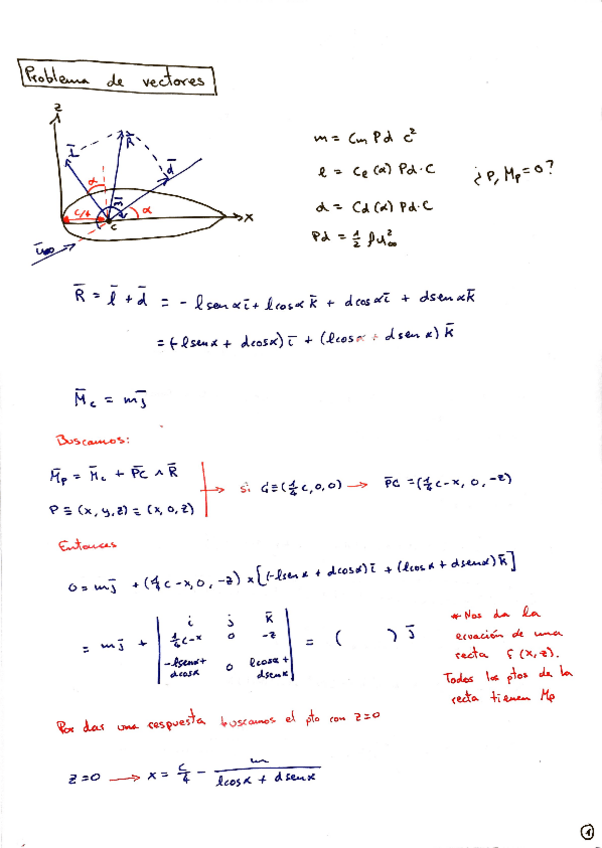 Problema de vectores
z
l̄
R̄
d̄
α
m̄
c/4
α
c
x
ū∞
m = Cm Pd c²
l = Cl(α) Pd·C
¿P, Mp = 0?
d = Cd(α) Pd·C
Pd = 1/2 ρu²∞
R̄ = l̄ + d̄ = - l sen α ī + l cos α k̄ + d cos α ī + d sen α k̄
= (-l sen α + d cos α) ī + (l cos α + d sen α) k̄
M̄c = m j̄
Buscamos:
M̄p = M̄c + P̄C ∧ R̄
P ≡ (x, y, z) = (x, 0, z)
→ si C ≡ (1/4 c, 0, 0) → P̄C = (1/4 c - x, 0, -z)
Entonces
0 = m j̄ + (1/4 c - x, 0, -z) × [(-l sen α + d cos α) ī + (l cos α + d sen α) k̄]
= m j̄ + | i j k̄
1/4 c - x 0 -z
-l sen α + d cos α 0 l cos α + d sen α | = ( ) j̄
* Nos da la
ecuación de una
recta f(x, z).
Todos los ptos de la
recta tienen Mp
Por dar una respuesta buscamos el pto con z=0
z=0 → x = c/4 - m / (l cos α + d sen α)
1